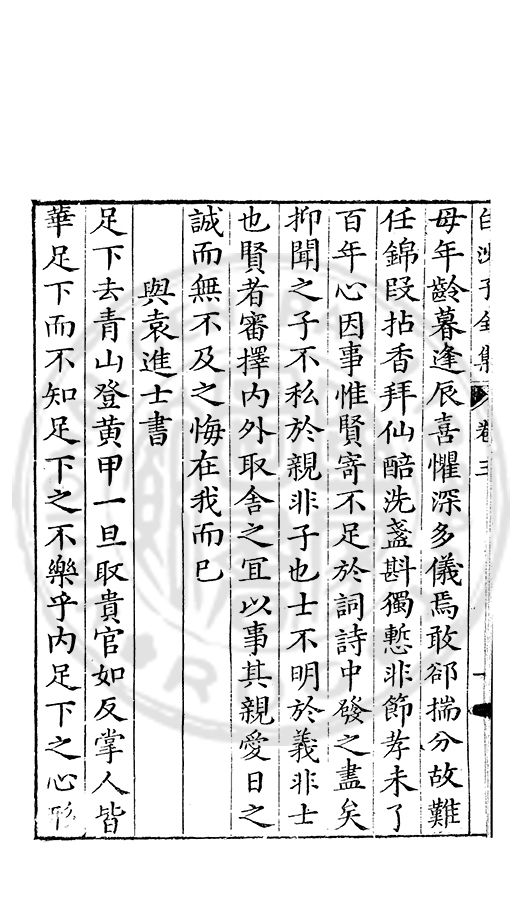 白沙子全集 卷三
母年齡暮逢辰喜懼深多儀焉敢郤揣分故難
任錦段拈香拜仙醅洗盞斟獨慙非節孝未了
百年心因事惟賢寄不足於詞詩中發之盡矣
抑聞之子不私於親非子也士不明於義非士
也賢者審擇內外取舍之冝以事其親愛日之
誠而無不及之悔在我而已
與袁進士書
足下去青山登黃甲一旦取貴官如反掌人皆
華足下而不知足下之不樂乎內足下之心形